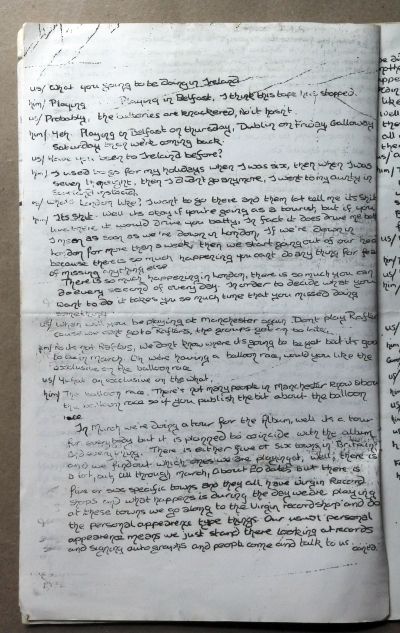 us/ What you going to be doing in Ireland
him/ Playing Playing in Belfast, I think this tape has stopped.
us/ Probably, the batteries are knackered, No it hasnt.
him/ Yeh. Playing in Belfast on thursday, Dublin on Friday, Galloway
Saturday then we're coming back.
us/ Have you been to Ireland before?
him/ I used to go for my holidays when I was six, then when I was
seven I thought, then I didnt go anymore, I went to my aunty in
instead.
us/ what's London like? I want to go there and then lot tell me its shit
him/ Its Shit. Well its okay if you're going as a tourist, but if you
live there it would drive you batty. In fact it does drive me batty
I mean as soon as we're down in London, If we're down in
London for more than a week, then we start going out of our heads
because there is so much happening you cant do any thing for fear
of missing anything else
There is so much happening in London, there is so much you can
do every second of every day. In order to decide what you
want to do it takes you so much time that you missed doing
something.
us/ When will you be playing at Manchester again Dont play Rafters
cause we cant go to Rafters, the groups you on too late.
him/ No its not Rafters, we dont know where its going to be yet but its going
to be in March. Oh we're having a balloon race, would you like the
exclusive on the balloon race
us/ What an exclusive on the what.
him/ The balloon race. There's not many people in Manchester know about
the balloon race so if you publish the bit about the balloon
race
In March we're doing a tour for the Album, well its a tour
for everybody but it is planned to coincide with the album
and everything. There is either five or six towns in Britain
and we find out which ones we are playing at, well, there is
a lot, early all through March, about 20 dates But there is
five or six specific towns and they all have Virgin Record
shops and what happens is during the day we are playing
at these towns we go along to the Virgin record shop and do
the personal appearence type things. Our usual personal
appearence means we just stand there looking at records
and signing autographs and people come and talk to us....
contd.